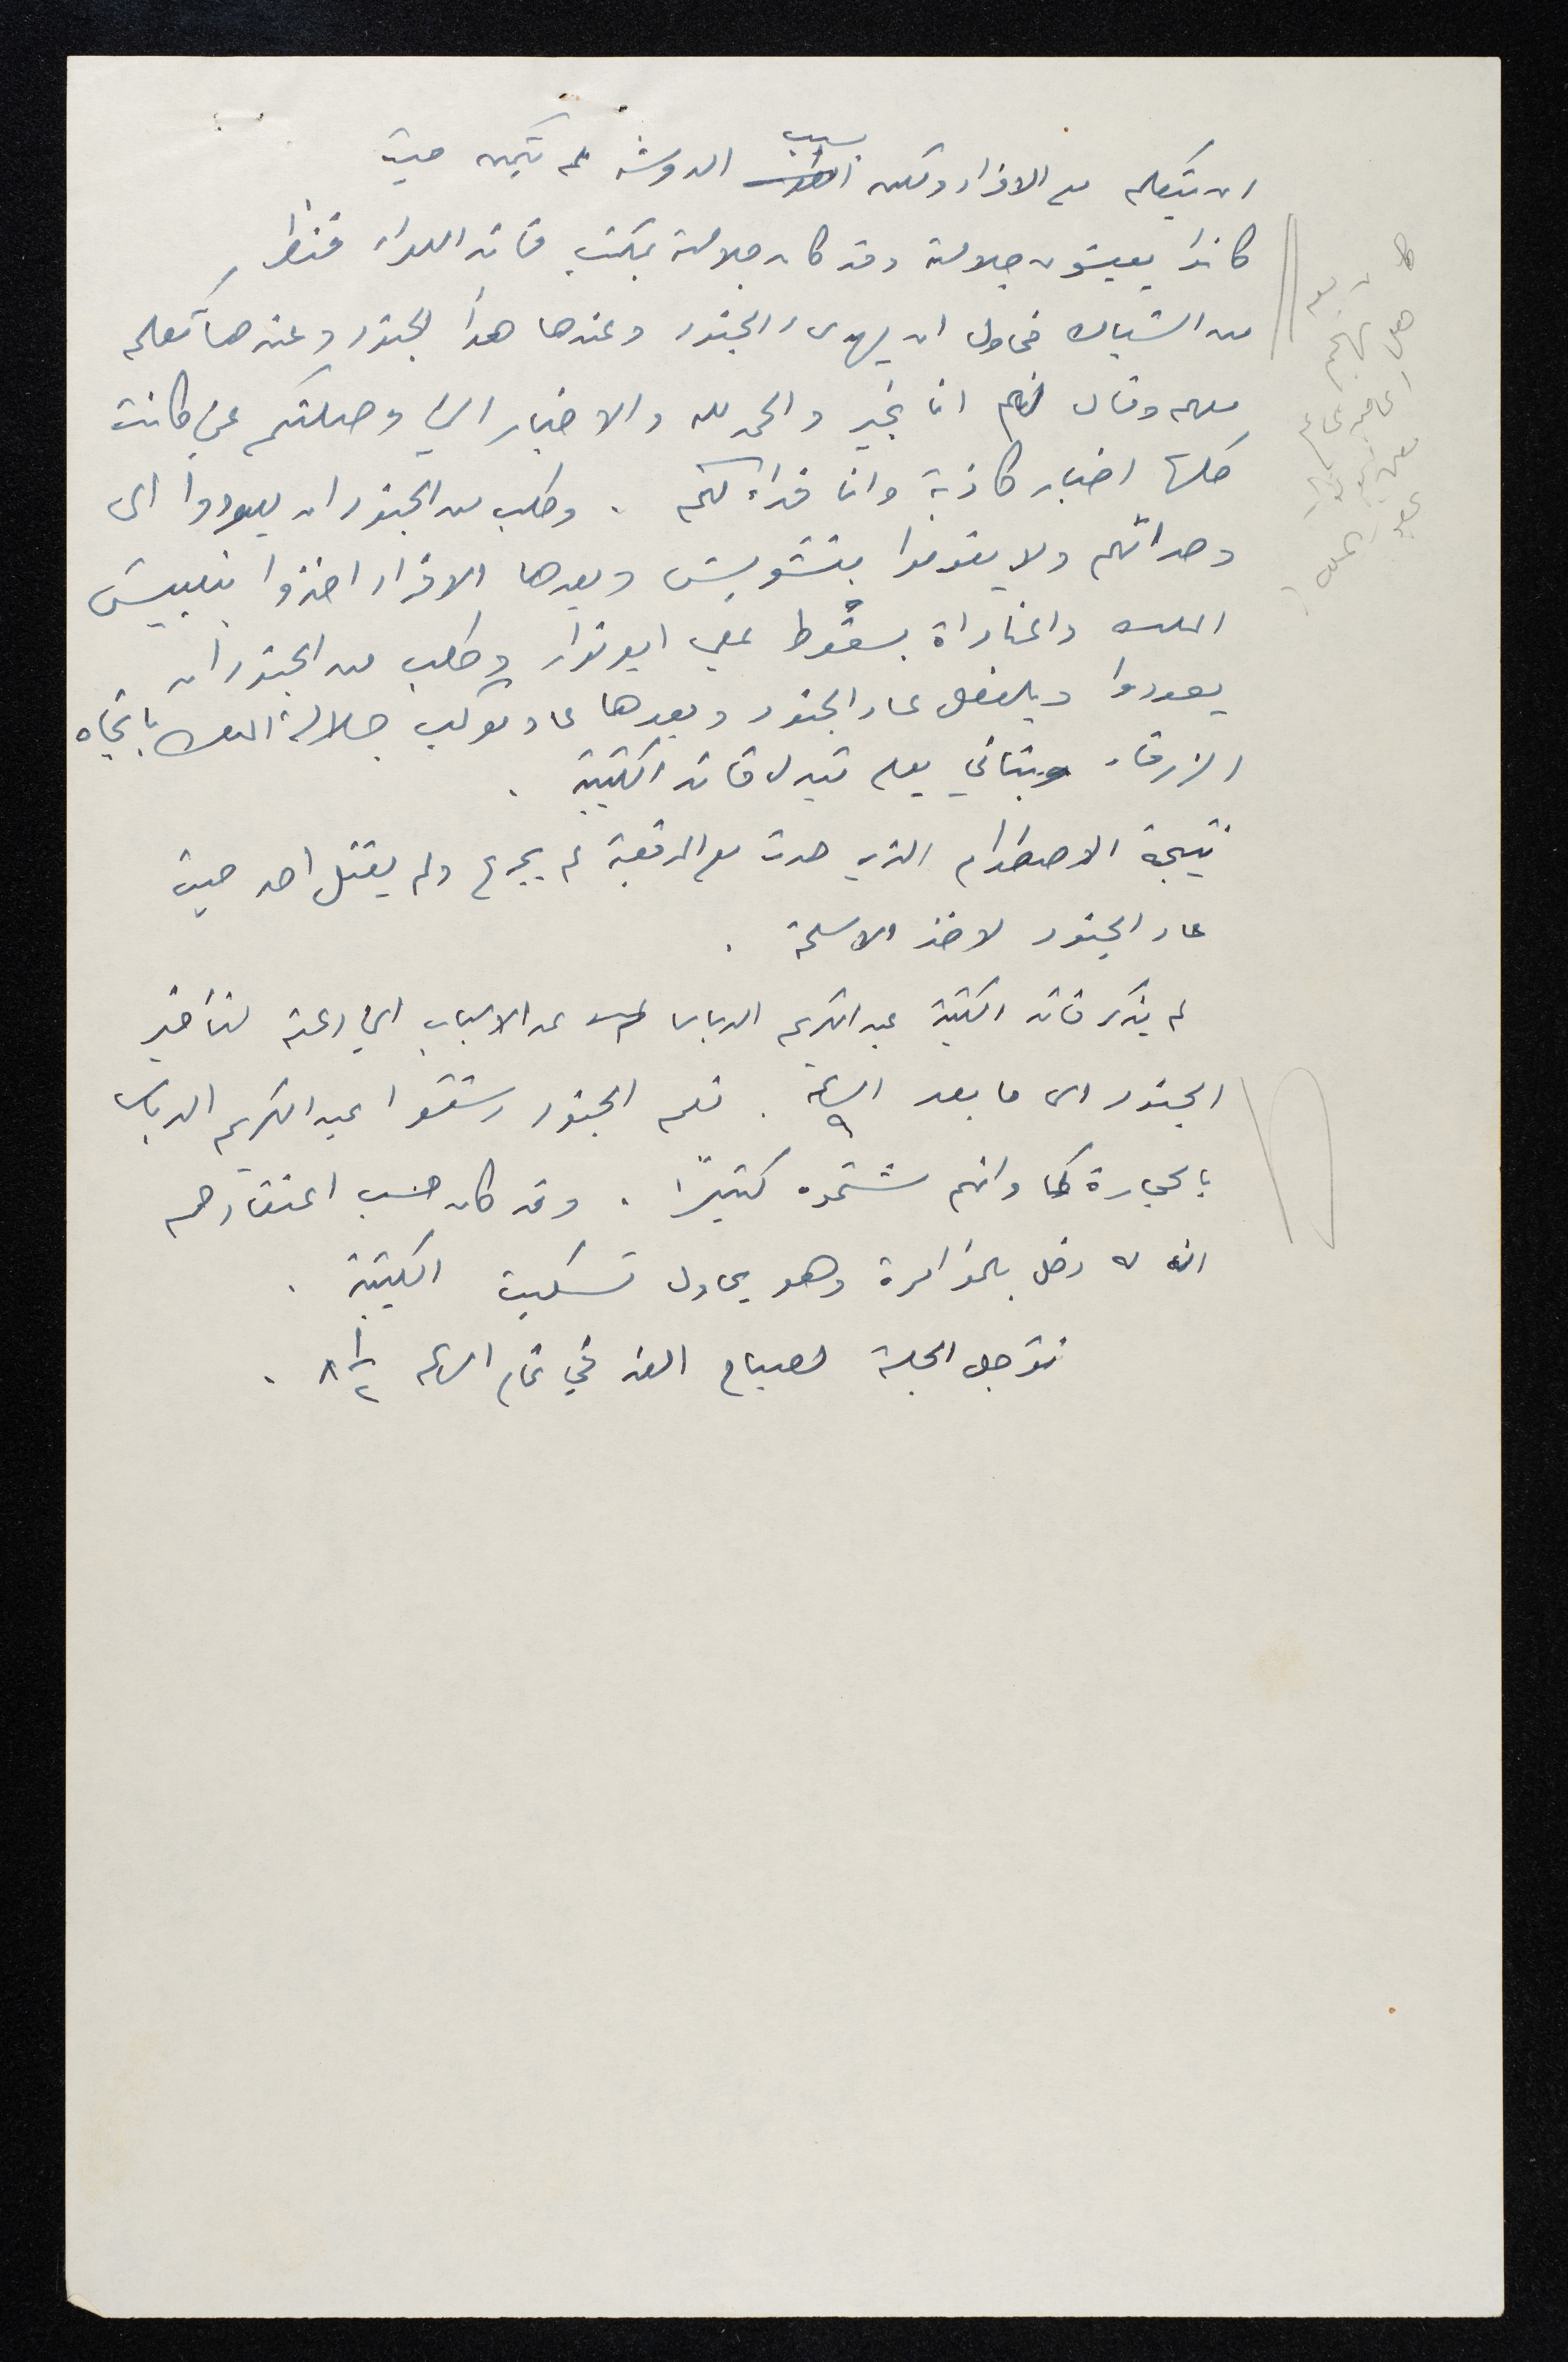 ان يتكلم مع الافراد ولكن بسبب الدوشه لم يتمكن حيث
كانوا يعيشون جلالته وقد كان جلالته بمكتب قائد اللواء فنظر
من الشباك فحاول ان يهدىء الجنود وعندها هدأ الجنود وعندها تكلم
معهم وقال لهم انا بخير والحمد لله والاخبار التي وصلتكم عني كانت
كلها اخبار كاذبة وانا فداء لكم . وطلب من الجنود ان يعودوا الى
وحداتهم ولا يقوموا بتشويش وبعدها الافراد اخذوا بتعييش
الملك والمناداة بسقوط علي ابو نوار وطلب من الجنود ان
يعودوا وبالفعل عاد الجنود وبعدها عاد موكب جلالة الملك باتجاه
الزرقاء وبتاني يوم تبدل قائد الكتيبة .
نتيجة الاصطدام الذي حدث مع المدفعية لم يجرح ولم يقتل احد حيث
عاد الجنود لاخذ الاسلحة .
لم يذكر قائد الكتيبة عبد الكريم الدباس عن الاسباب التي دعته لتأخير
الجنود الى ما بعد الساعة ٩ . نعم الجنود رشقوا عبد الكريم الدباس
بالحجارة كما وانهم شتموه كثيرًا . وقد كان حسب اعتقادهم
انه له دخل بالمؤامرة وهو يحاول تسكيت الكتيبة .
تؤجل الجلسة لصباح الغد في تمام الساعه ٨ ١/٢ .